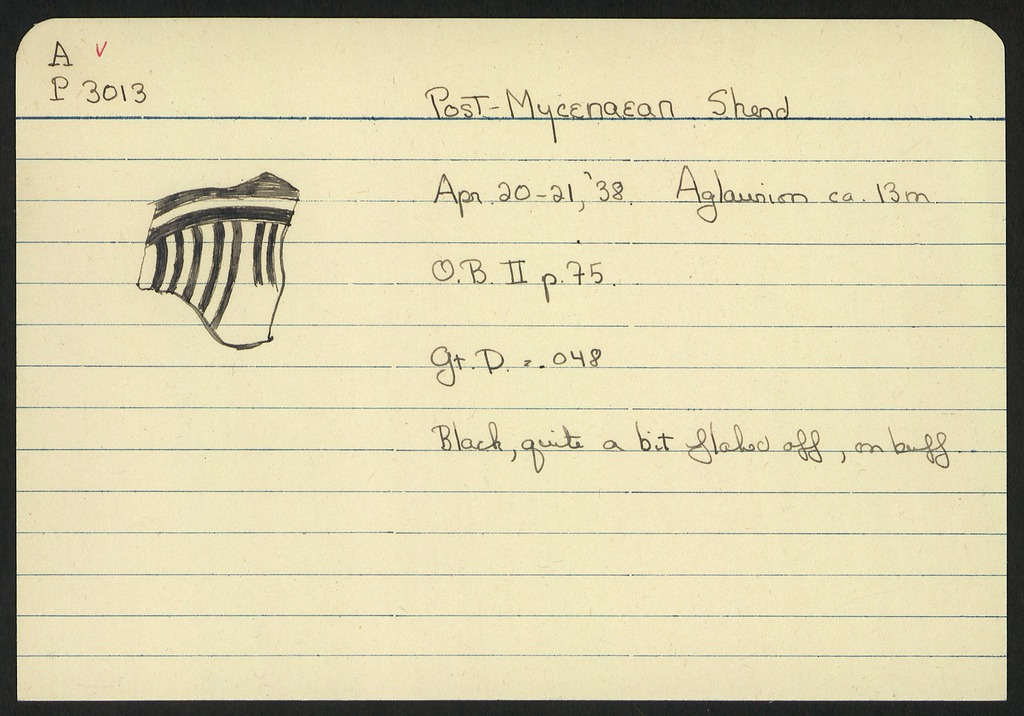 A v
P 3013
Post-Mycenaean Sherd
Apr. 20-21, '38. Aglaurion ca. 13m
O.B. II p.75.
Gt. D. = .048
Black, quite a bit flaked off, on buff.